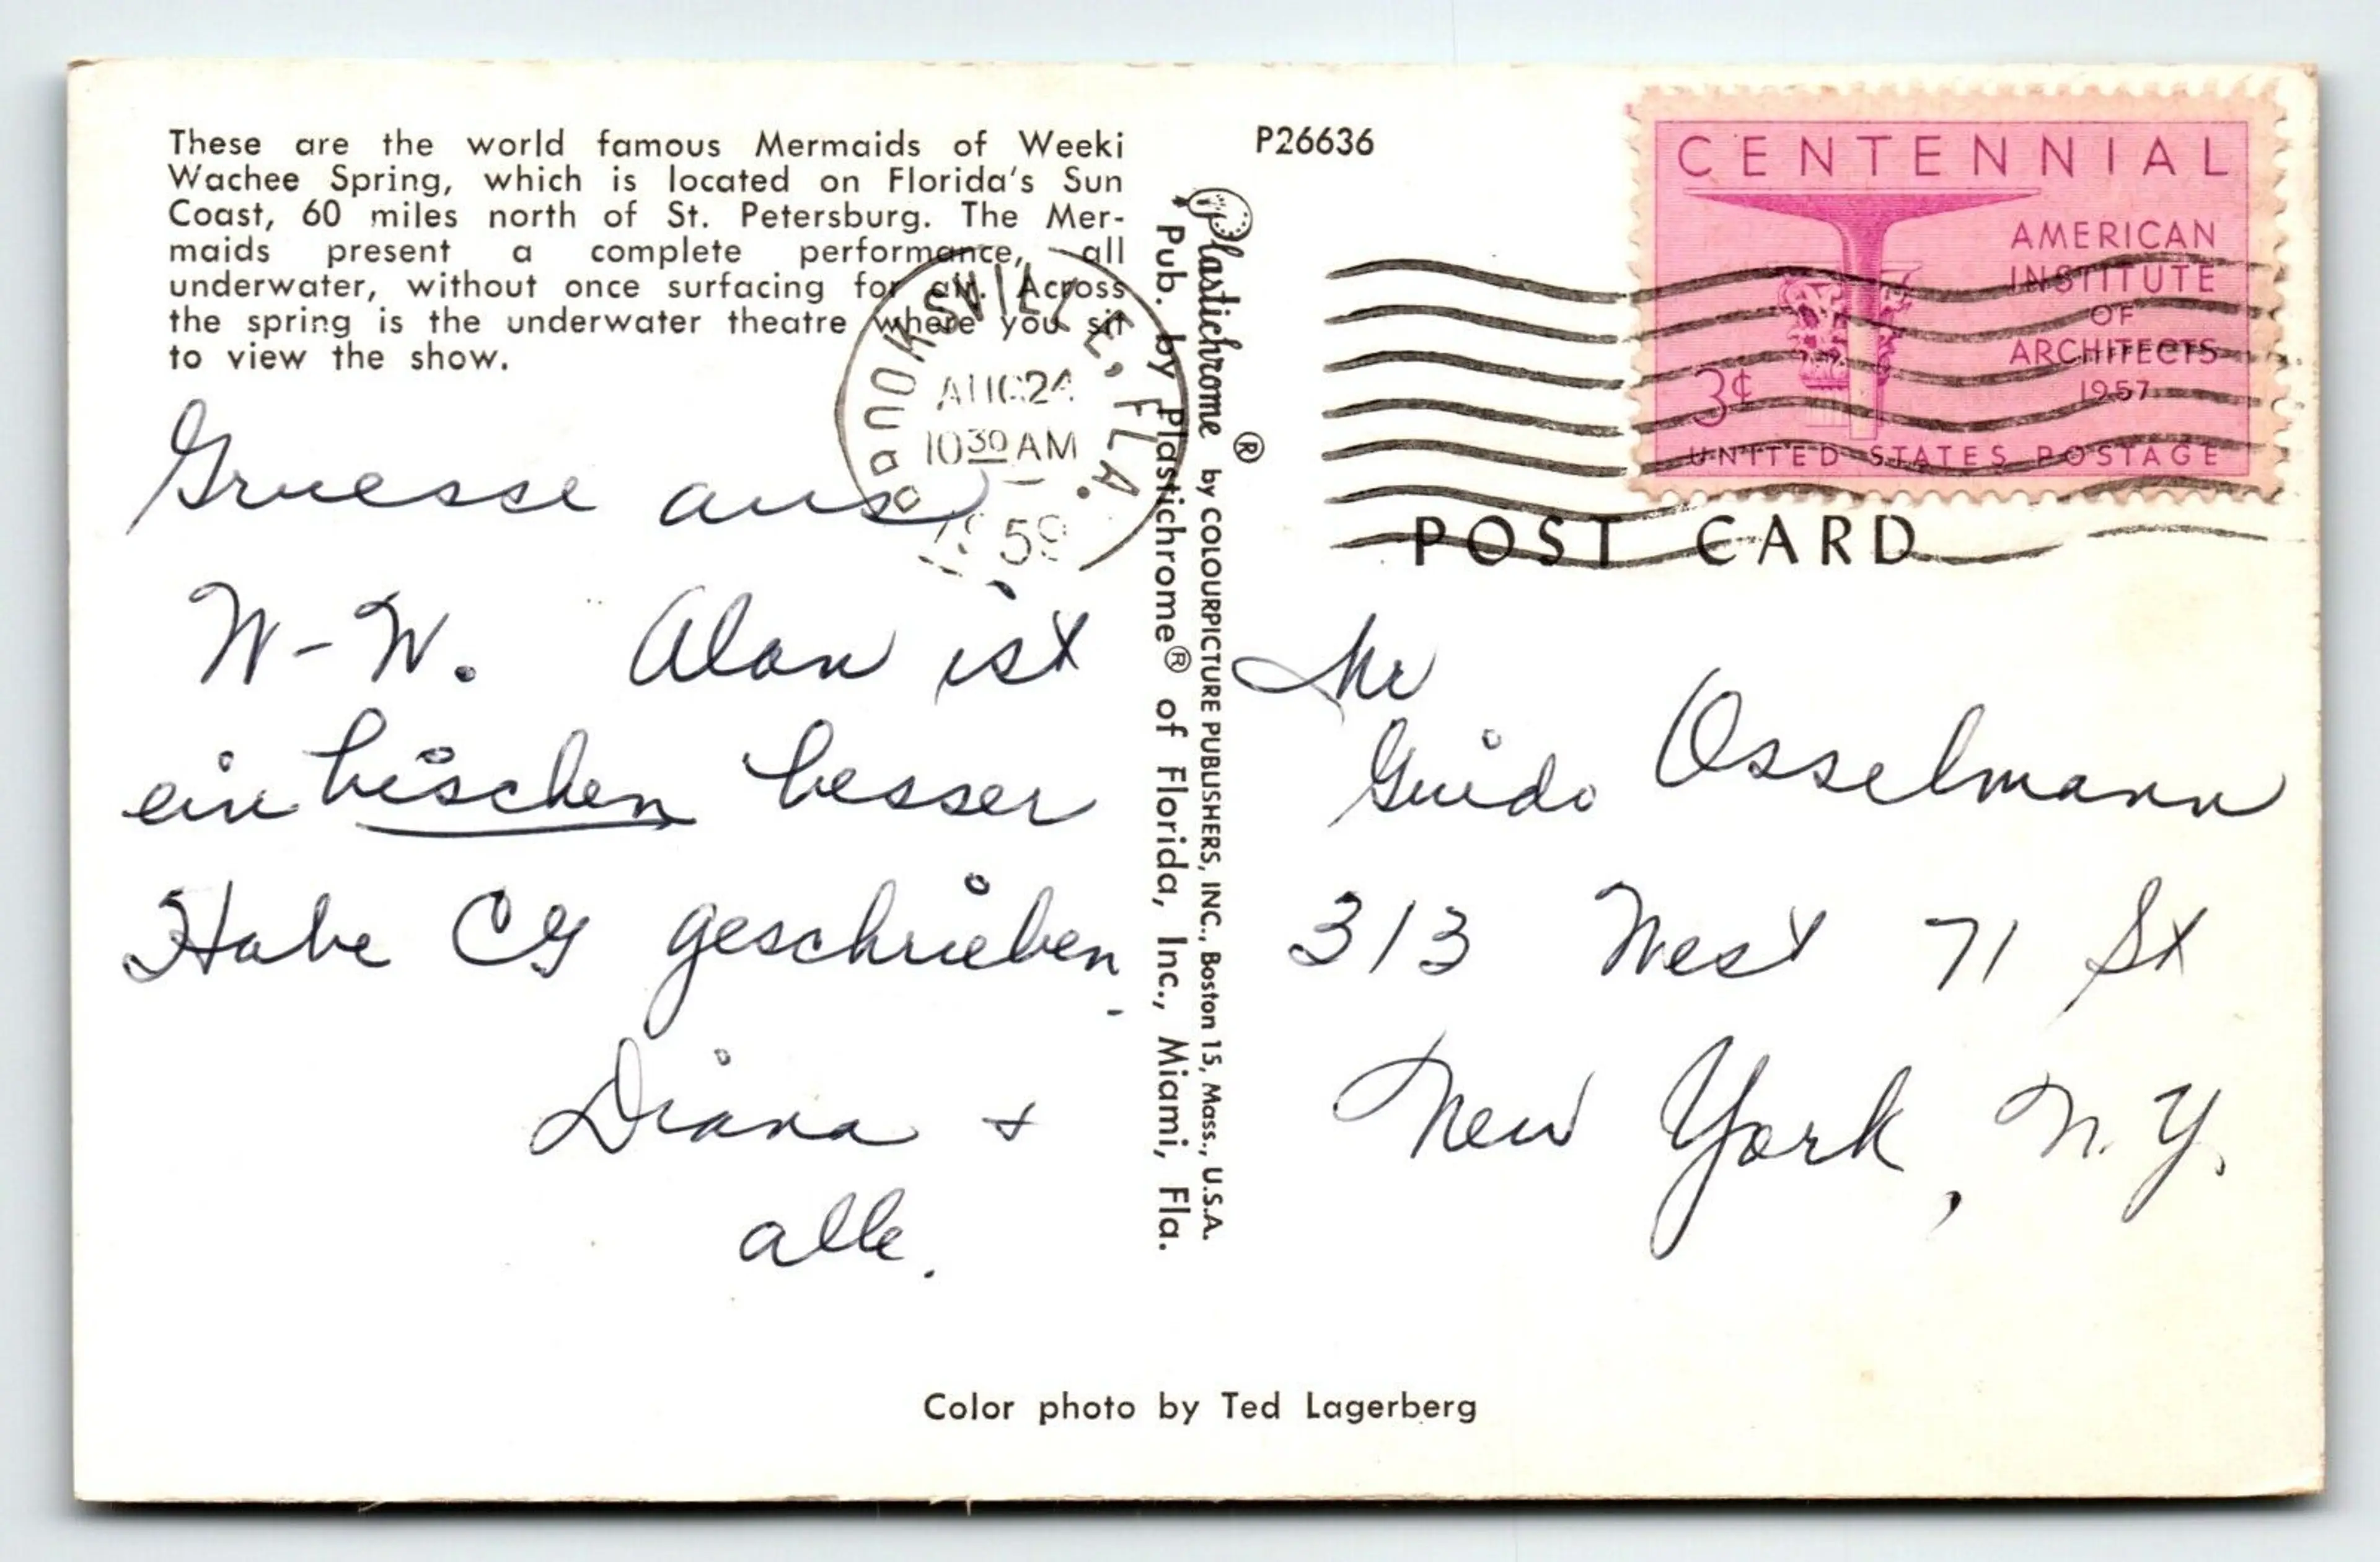 These are the world famous Mermaids of Weeki
Wachee Spring, which is located on Florida's Sun
Coast, 60 miles north of St. Petersburg. The Mer-
maids present a complete performance, all
underwater, without once surfacing for air. Across
the spring is the underwater theatre where you sit
to view the show.
Gruesse aus
W-W. Alan ist
ein bischen besser
Habe CG geschrieben.
Diana +
alle.
BROOKSVILLE, FLA.
AUG 24
10 30 AM
1959
Plastichrome ® by COLOURPICTURE PUBLISHERS, INC., Boston 15, Mass., U.S.A.
Pub. by Plastichrome® of Florida, Inc., Miami, Fla.
P26636
CENTENNIAL
AMERICAN
INSTITUTE
OF
ARCHITECTS
1957
3¢
UNITED STATES POSTAGE
POST CARD
Mr
Guido Osselmann
313 West 71 St
New York, N.Y.
Color photo by Ted Lagerberg